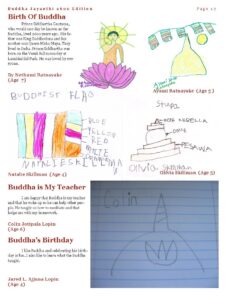 Buddha Jayanthi 2600 Edition
Page 17
Birth Of Buddha
Prince Siddhartha Gautama,
who would one day be known as the
Buddha, lived 2600 years ago. His fa-
ther was King Suddhodana and his
mother was Queen Maha Maya. They
lived in India. Prince Siddhartha was
born on the Vesak full moon day at
Lumbini Sal Park. He was loved by eve-
ryone.
By Nethumi Ratnayake
(Age 7)
Ahumi Ratnayake (Age 5)
BUDDHIST FLAG
BLUE
YELLOW
RED
WHITE
ORANGE
NATALIE SKILLMAN
Natalie Skillman (Age 4)
Stupa
DOME
Olivia Skillman
Olivia Skillman (Age 5)
Buddha is My Teacher
I am happy that Buddha is my teacher
and that he woke up so he can help other peo-
ple. He taught us how to meditate and that
helps me with my homework.
Colin Jottpala Lopin
(Age 6)
Buddha's Birthday
I like Buddha and celebrating his birth-
day is fun. I also like to learn what the Buddha
taught.
Jared L. Ajjuna Lopin
(Age 4)
Colin